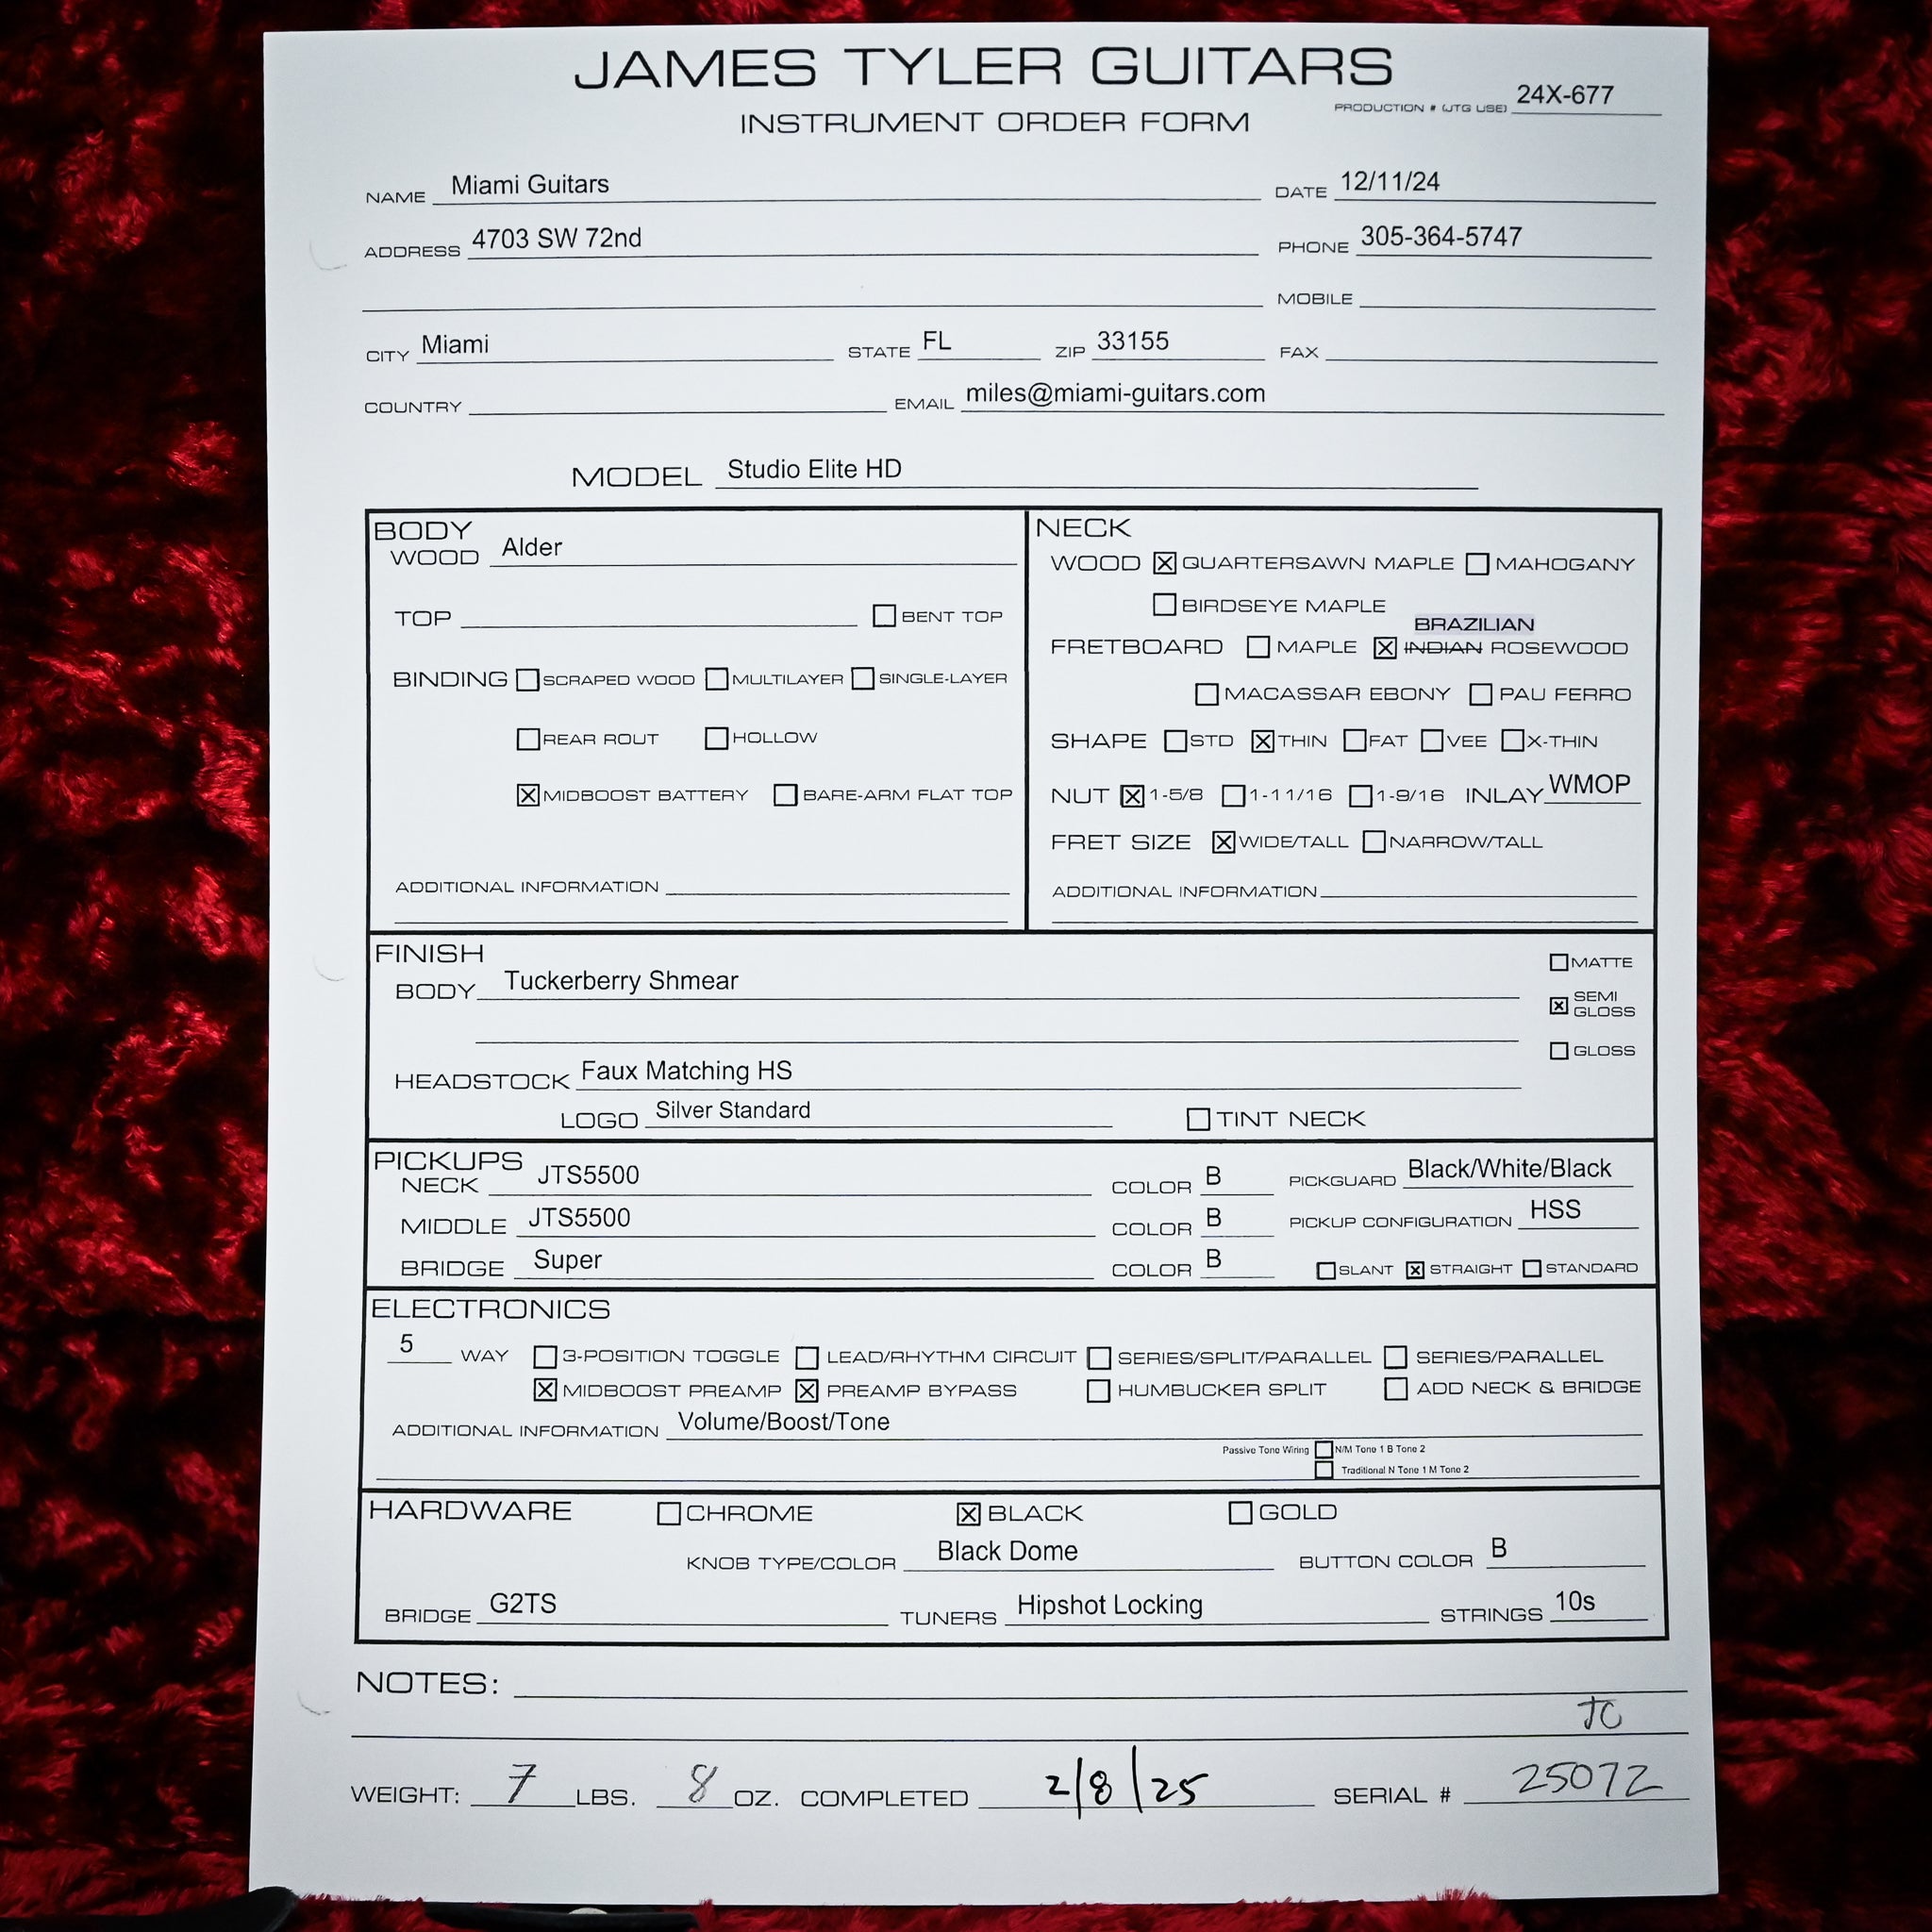 JAMES TYLER GUITARS
INSTRUMENT ORDER FORM
PRODUCTION # (JTG USE) 24X-677
NAME Miami Guitars DATE 12/11/24
ADDRESS 4703 SW 72nd PHONE 305-364-5747
MOBILE
CITY Miami STATE FL ZIP 33155 FAX
COUNTRY EMAIL miles@miami-guitars.com
MODEL Studio Elite HD
BODY
WOOD Alder
TOP BENT TOP
BINDING SCRAPED WOOD MULTILAYER SINGLE-LAYER
REAR ROUT HOLLOW
☒ MIDBOOST BATTERY BARE-ARM FLAT TOP
ADDITIONAL INFORMATION
NECK
WOOD ☒ QUARTERSAWN MAPLE MAHOGANY
BIRDSEYE MAPLE
BRAZILIAN
FRETBOARD MAPLE ☒ INDIAN ROSEWOOD
MACASSAR EBONY PAU FERRO
SHAPE STD ☒ THIN FAT VEE X-THIN
NUT ☒ 1-5/8 1-11/16 1-9/16 INLAY WMOP
FRET SIZE ☒ WIDE/TALL NARROW/TALL
ADDITIONAL INFORMATION
FINISH
BODY Tuckerberry Shmear
MATTE
☒ SEMI GLOSS
GLOSS
HEADSTOCK Faux Matching HS
LOGO Silver Standard TINT NECK
PICKUPS
NECK JTS5500 COLOR B PICKGUARD Black/White/Black
MIDDLE JTS5500 COLOR B PICKUP CONFIGURATION HSS
BRIDGE Super COLOR B SLANT ☒ STRAIGHT STANDARD
ELECTRONICS
5 WAY 3-POSITION TOGGLE LEAD/RHYTHM CIRCUIT SERIES/SPLIT/PARALLEL SERIES/PARALLEL
☒ MIDBOOST PREAMP ☒ PREAMP BYPASS HUMBUCKER SPLIT ADD NECK & BRIDGE
ADDITIONAL INFORMATION Volume/Boost/Tone
Passive Tone Wiring N/M Tone 1 B Tone 2
Traditional N Tone 1 M Tone 2
HARDWARE CHROME ☒ BLACK GOLD
KNOB TYPE/COLOR Black Dome BUTTON COLOR B
BRIDGE G2TS TUNERS Hipshot Locking STRINGS 10s
NOTES:
JC
WEIGHT: 7 LBS. 8 OZ. COMPLETED 2/8/25 SERIAL # 25072